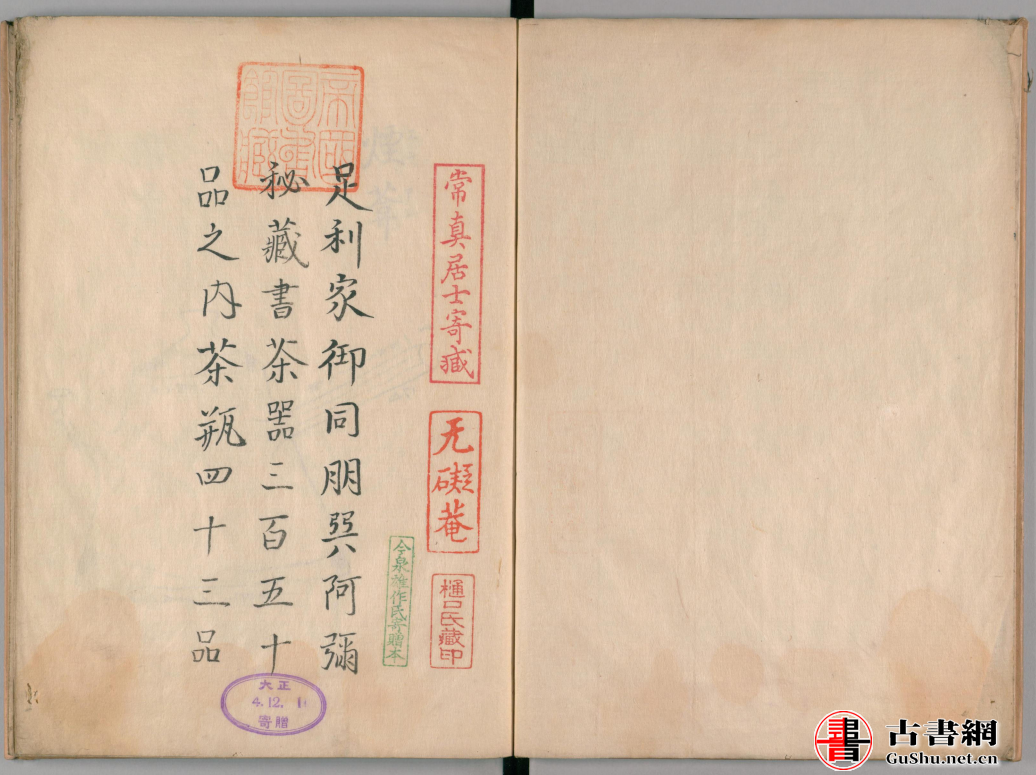 常真居士寄藏
无礙菴
樋口氏藏印
今泉雄作氏寄贈本
帝國
圖書
館藏
足利家御同朋巽阿彌
秘藏書茶器三百五十
品之内茶瓶四十三品
大正
4.12.
寄贈
古書網
GuShu.net.cn